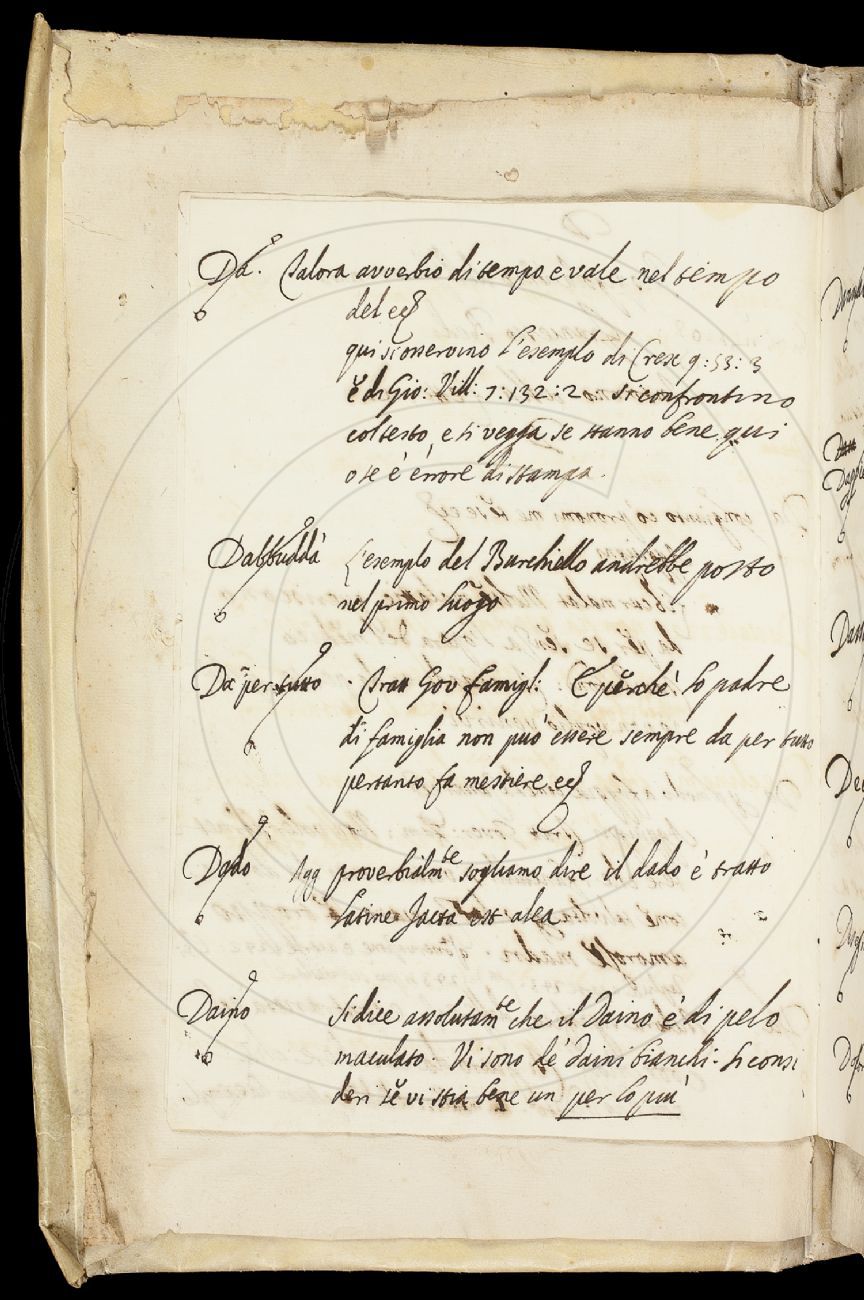 Da. Talora avverbio di tempo e vale nel tempo
del ecc
qui si osservino l'esemplo di Cresc 9:53:3
e di Gio: Vill: 7:132:2. si confrontino
col testo, e si vegga se stanno bene qui
o se è errore di stampa.
Dabbuddà L'esemplo del Burchiello andrebbe posto
nel primo luogo
Da per tutto. Tratt Gov famigl: E perchè lo padre
di famiglia non può essere sempre da per tutto
pertanto fa mestiere ecc
Dado Agg proverbialmte sogliamo dire il dado è tratto
latine Jacta est alea
Daino Si dice assolutamte che il Daino è di pelo
maculato. Vi sono de' daini bianchi. Si consi
deri se vi stia bene un per lo più